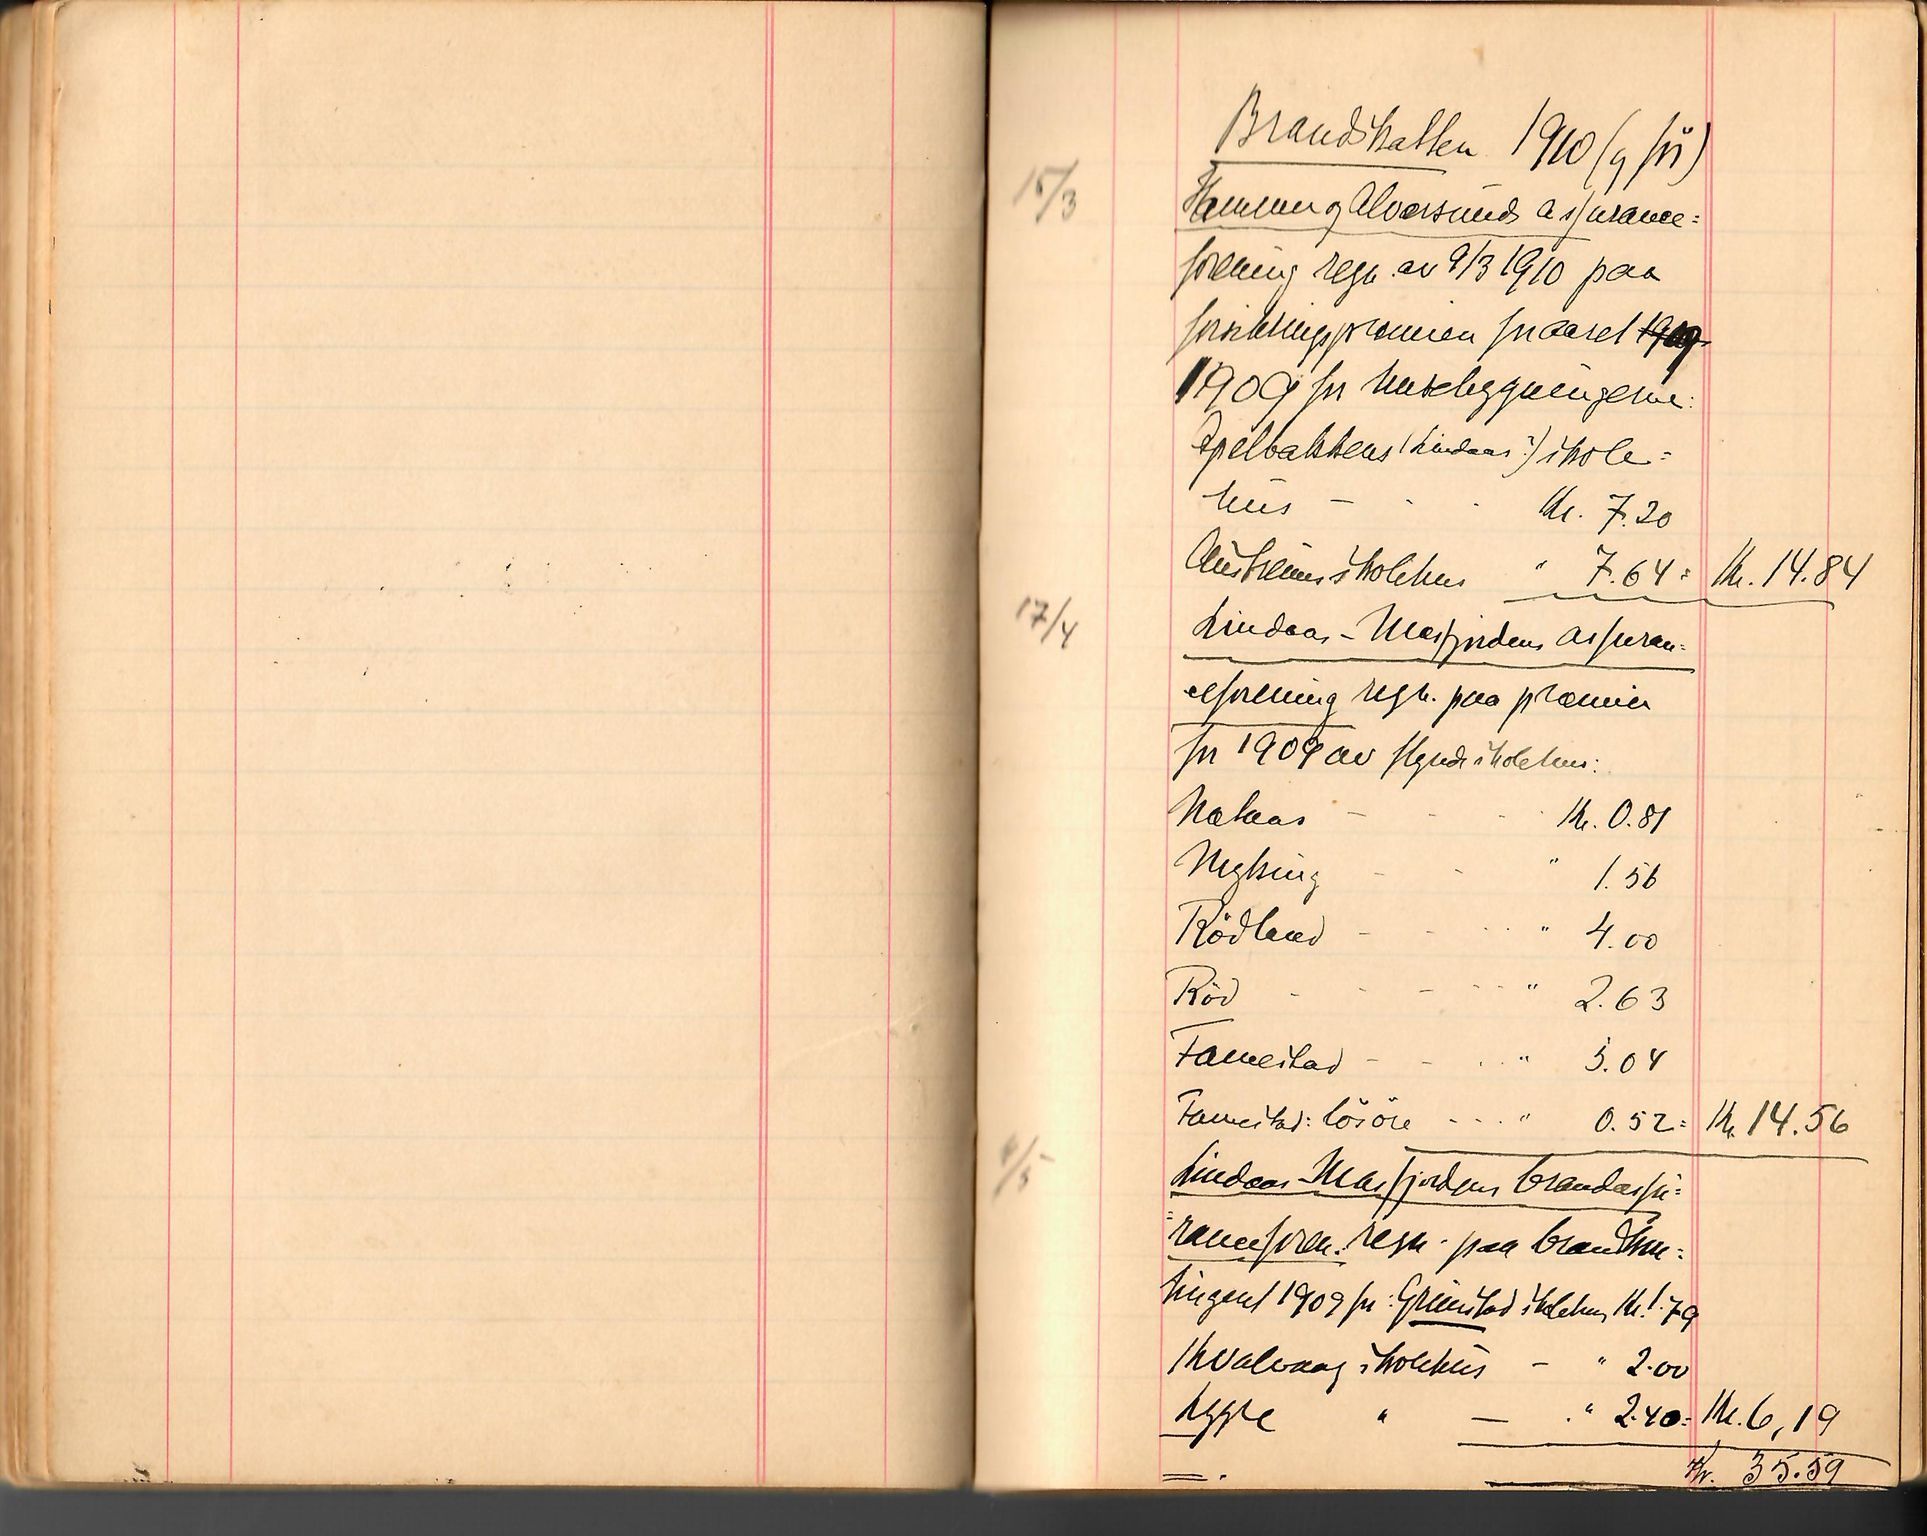 Brandskatten 1910 (og før)
15/3
Hammer og Alversunds assurance=
forening regn. av 9/3 1910 paa
forsikringspræmien for aaret 1909
1909 for husebygningerne:
Apelbakkens (Lindaas?) skole=
hus - - - Kr. 7.20
Austreim skolehus " 7.64= Kr. 14.84
17/4
Lindaas-Masfjordens assuran=
ceforening regn. paa præmier
for 1909 av flg. skolehus:
Nataas - - - Kr. 0.81
Myking - - " 1.56
Rödland - - - " 4.00
Röd - - - - " 2.63
Fanestad - - - " 5.04
Fanestad: lösöre - - - " 0.52= Kr. 14.56
Lindaas-Masfjordens brandassu=
=ranceforen. regn. paa brandkon=
tingent 1909 for: Grimstad skolehus Kr. 1.79
Kvalvaag skolehus - " 2.00
Lygre " - " 2.40= Kr. 6,19
Kr. 35.59